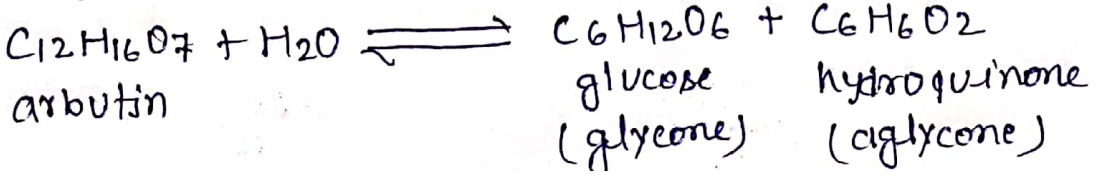 C12H16O7 + H2O ⇌ C6H12O6 + C6H6O2
arbutin glucose hydroquinone
(glycone) (aglycone)